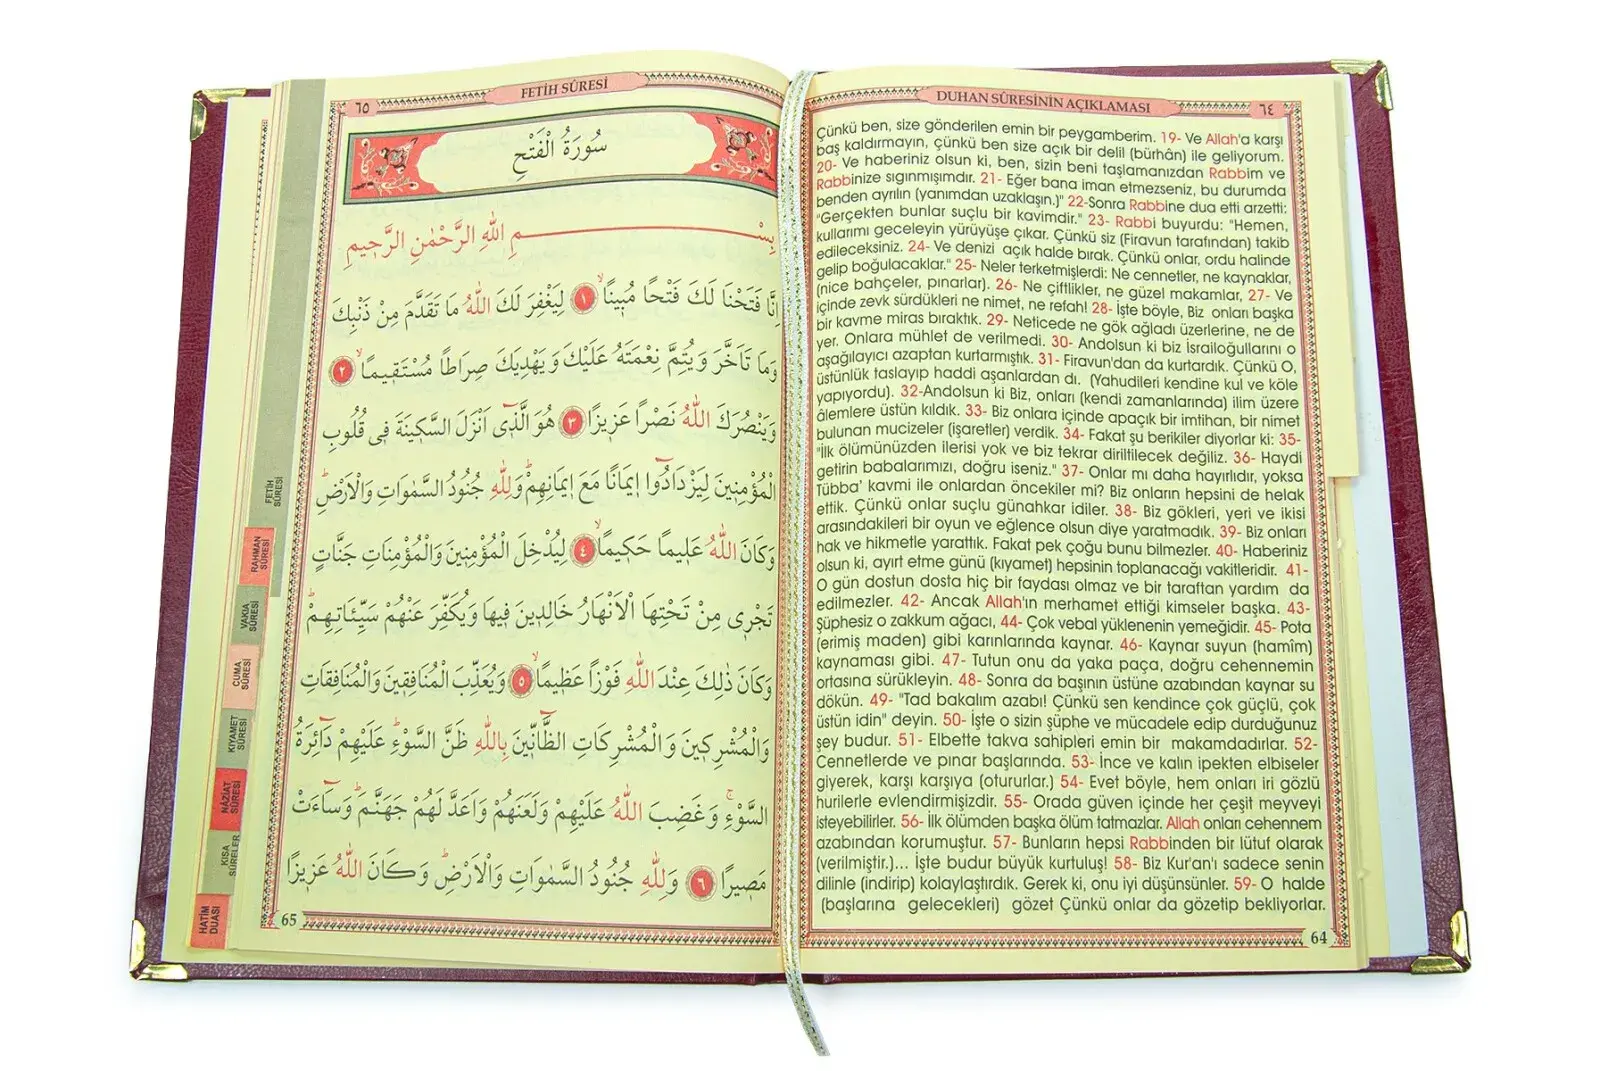 DUHAN SÛRESİNİN AÇIKLAMASI
٦٤
Çünkü ben, size gönderilen emin bir peygamberim. 19- Ve Allah'a karşı
baş kaldırmayın, çünkü ben size açık bir delil (bürhân) ile geliyorum.
20- Ve haberiniz olsun ki, ben, sizin beni taşlamanızdan Rabbim ve
Rabbinize sıgınmışımdır. 21- Eğer bana iman etmezseniz, bu durumda
benden ayrılın (yanımdan uzaklaşın.)" 22-Sonra Rabbine dua etti arzetti:
"Gerçekten bunlar suçlu bir kavimdir." 23- Rabbi buyurdu: "Hemen,
kullarımı geceleyin yürüyüşe çıkar. Çünkü siz (Firavun tarafından) takib
edileceksiniz. 24- Ve denizi açık halde bırak. Çünkü onlar, ordu halinde
gelip boğulacaklar." 25- Neler terketmişlerdi: Ne cennetler, ne kaynaklar,
(nice bahçeler, pınarlar). 26- Ne çiftlikler, ne güzel makamlar, 27- Ve
içinde zevk sürdükleri ne nimet, ne refah! 28- İşte böyle, Biz onları başka
bir kavme miras bıraktık. 29- Neticede ne gök ağladı üzerlerine, ne de
yer. Onlara mühlet de verilmedi. 30- Andolsun ki biz İsrailoğullarını o
aşağılayıcı azaptan kurtarmıştık. 31- Firavun'dan da kurtardık. Çünkü O,
üstünlük taslayıp haddi aşanlardan dı. (Yahudileri kendine kul ve köle
yapıyordu). 32-Andolsun ki Biz, onları (kendi zamanlarında) ilim üzere
âlemlere üstün kıldık. 33- Biz onlara içinde apaçık bir imtihan, bir nimet
bulunan mucizeler (işaretler) verdik. 34- Fakat şu berikiler diyorlar ki: 35-
"İlk ölümünüzden ilerisi yok ve biz tekrar diriltilecek değiliz. 36- Haydi
getirin babalarımızı, doğru iseniz." 37- Onlar mı daha hayırlıdır, yoksa
Tübba' kavmi ile onlardan öncekiler mi? Biz onların hepsini de helak
ettik. Çünkü onlar suçlu günahkar idiler. 38- Biz gökleri, yeri ve ikisi
arasındakileri bir oyun ve eğlence olsun diye yaratmadık. 39- Biz onları
hak ve hikmetle yarattık. Fakat pek çoğu bunu bilmezler. 40- Haberiniz
olsun ki, ayırt etme günü (kıyamet) hepsinin toplanacağı vakitleridir. 41-
O gün dostun dosta hiç bir faydası olmaz ve bir taraftan yardım da
edilmezler. 42- Ancak Allah'ın merhamet ettiği kimseler başka. 43-
Şüphesiz o zakkum ağacı, 44- Çok vebal yüklenenin yemeğidir. 45- Pota
(erimiş maden) gibi karınlarında kaynar. 46- Kaynar suyun (hamîm)
kaynaması gibi. 47- Tutun onu da yaka paça, doğru cehennemin
ortasına sürükleyin. 48- Sonra da başının üstüne azabından kaynar su
dökün. 49- "Tad bakalım azabı! Çünkü sen kendince çok güçlü, çok
üstün idin" deyin. 50- İşte o sizin şüphe ve mücadele edip durduğunuz
şey budur. 51- Elbette takva sahipleri emin bir makamdadırlar. 52-
Cennetlerde ve pınar başlarında. 53- İnce ve kalın ipekten elbiseler
giyerek, karşı karşıya (otururlar.) 54- Evet böyle, hem onları iri gözlü
hurilerle evlendirmişizdir. 55- Orada güven içinde her çeşit meyveyi
isteyebilirler. 56- İlk ölümden başka ölüm tatmazlar. Allah onları cehennem
azabından korumuştur. 57- Bunların hepsi Rabbinden bir lütuf olarak
(verilmiştir.)... İşte budur büyük kurtuluş! 58- Biz Kur'an'ı sadece senin
dilinle (indirip) kolaylaştırdık. Gerek ki, onu iyi düşünsünler. 59- O halde
(başlarına gelecekleri) gözet Çünkü onlar da gözetip bekliyorlar.
64
٦٥
FETİH SÛRESİ
سُورَةُ الْفَتْحِ
بِسْمِ اللّٰهِ الرَّحْمٰنِ الرَّحٖيمِ
اِنَّا فَتَحْنَا لَكَ فَتْحًا مُبٖينًاۙ ١ لِيَغْفِرَ لَكَ اللّٰهُ مَا تَقَدَّمَ مِنْ ذَنْبِكَ
وَمَا تَاَخَّرَ وَيُتِمَّ نِعْمَتَهُ عَلَيْكَ وَيَهْدِيَكَ صِرَاطًا مُسْتَقٖيمًاۙ ٢
وَيَنْصُرَكَ اللّٰهُ نَصْرًا عَزٖيزًا ٣ هُوَ الَّذٖٓى اَنْزَلَ السَّكٖينَةَ فٖى قُلُوبِ
الْمُؤْمِنٖينَ لِيَزْدَادُٓوا اٖيمَانًا مَعَ اٖيمَانِهِمْؕ وَلِلّٰهِ جُنُودُ السَّمٰوَاتِ وَالْاَرْضِؕ
وَكَانَ اللّٰهُ عَلٖيمًا حَكٖيمًاۙ ٤ لِيُدْخِلَ الْمُؤْمِنٖينَ وَالْمُؤْمِنَاتِ جَنَّاتٍ
تَجْرٖى مِنْ تَحْتِهَا الْاَنْهَارُ خَالِدٖينَ فٖيهَا وَيُكَفِّرَ عَنْهُمْ سَيِّـَٔاتِهِمْؕ
وَكَانَ ذٰلِكَ عِنْدَ اللّٰهِ فَوْزًا عَظٖيمًاۙ ٥ وَيُعَذِّبَ الْمُنَافِقٖينَ وَالْمُنَافِقَاتِ
وَالْمُشْرِكٖينَ وَالْمُشْرِكَاتِ الظَّٓانّٖينَ بِاللّٰهِ ظَنَّ السَّوْءِؕ عَلَيْهِمْ دَٓائِرَةُ
السَّوْءِۚ وَغَضِبَ اللّٰهُ عَلَيْهِمْ وَلَعَنَهُمْ وَاَعَدَّ لَهُمْ جَهَنَّمَؕ وَسَٓاءَتْ
مَصٖيرًا ٦ وَلِلّٰهِ جُنُودُ السَّمٰوَاتِ وَالْاَرْضِؕ وَكَانَ اللّٰهُ عَزٖيزًا
65
FETİH
SÛRESİ
RAHMAN
SÛRESİ
VAKIA
SÛRESİ
CUMA
SÛRESİ
KIYAMET
SÛRESİ
NÂZİAT
SÛRESİ
KISA
SÛRELER
HATİM
DUASI